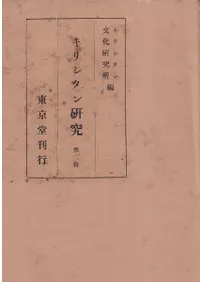 キリシタン
文化研究所 編
キリシタン研究 第一輯
東京堂刊行